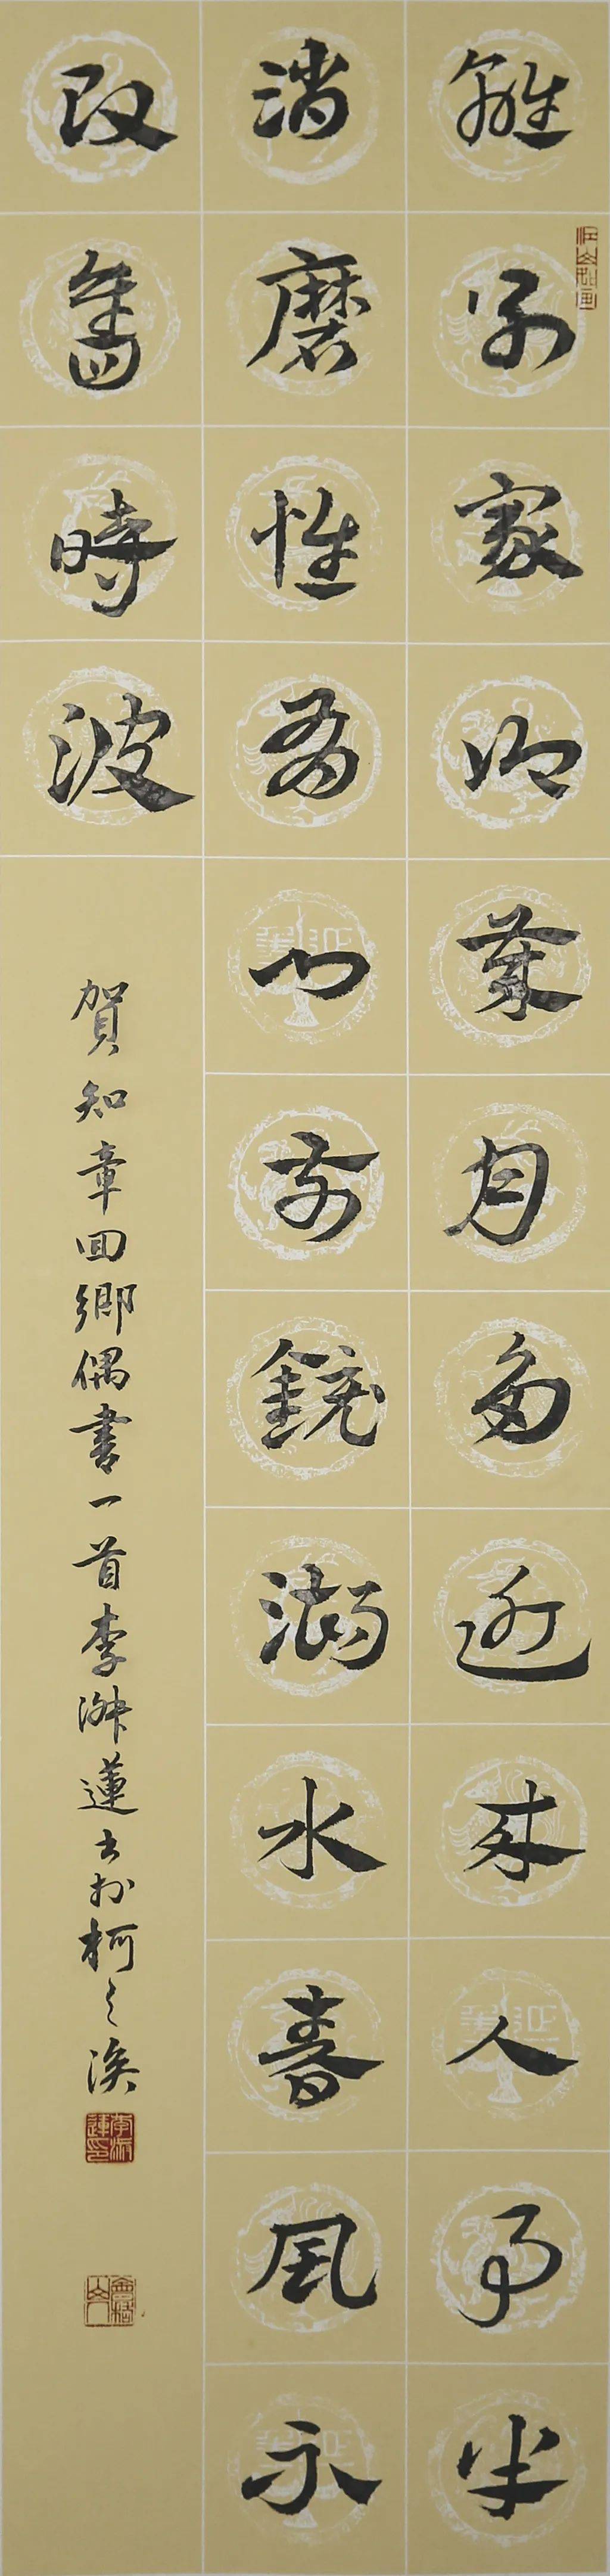 江山如画
離別家鄉歲月多近來人事半
消磨惟有門前鏡湖水春風不
改舊時波
賀知章回鄉偶書一首李淑蓮書於柯之溪
李淑蓮印